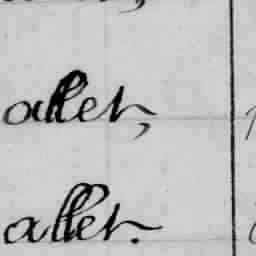 allet,
allet.